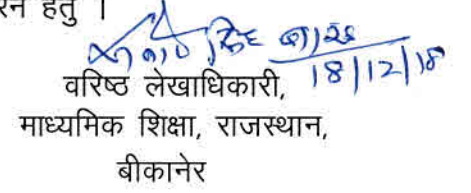 रन हेतु ।
18/12/18
वरिष्ठ लेखाधिकारी,
माध्यमिक शिक्षा, राजस्थान,
बीकानेर